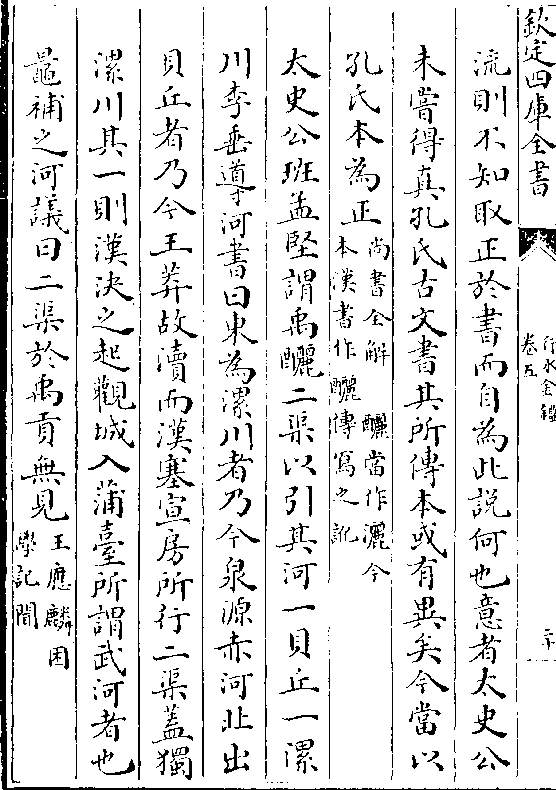 欽定四庫全書
行水金鑑
卷五
二十
流則不知取正於書而自為此說何也意者太史公
未嘗得真孔氏古文書其所傳本或有異矣今當以
孔氏本為正尚書全解 釃當作灑今
本漢書作釃傳寫之訛
太史公班孟堅謂禹釃二渠以引其河一貝丘一漯
川李垂導河書曰東為漯川者乃今泉源赤河北出
貝丘者乃今王莽故瀆而漢塞宣房所行二渠蓋獨
漯川其一則漢決之起觀城入蒲臺所謂武河者也
鼂補之河議曰二渠於禹貢無見王應麟困
學記聞